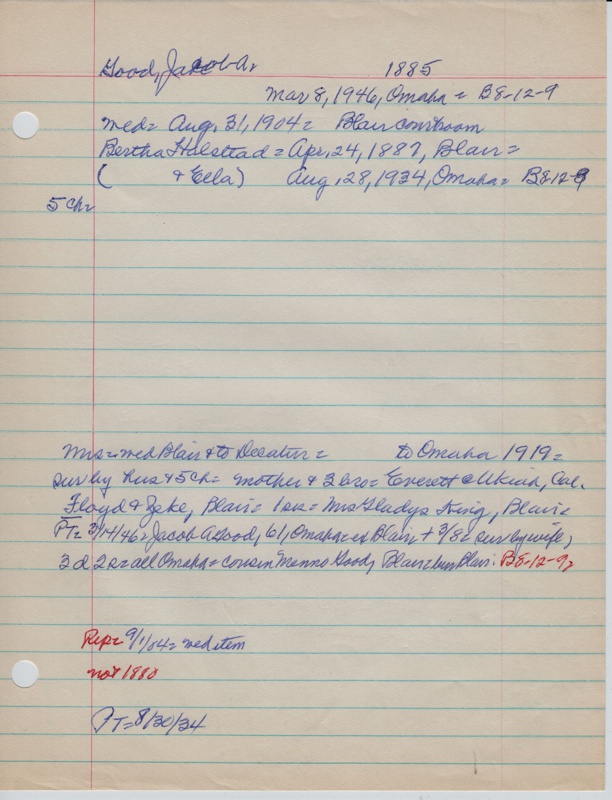 Good, Jacob A. 1885
Mar 8, 1946, Omaha = B8-12-9
med = Aug. 31, 1904 = Blair courtroom
Bertha Halstead = Apr. 24, 1887, Blair =
( + Ella) Aug. 28, 1934, Omaha = B8-12-8
5 ch =
Mrs = med Blair & to Decatur = to Omaha 1919 =
sur by hus & 5 ch = mother & 3 bro = Everett @ Ukiah, Cal.
Floyd & Zeke, Blair = 1 sis = Mrs Gladys King, Blair =
PT = 3/14/46 = Jacob A Good, 61, Omaha = ex Blair, + 3/8 = sur by wife,
3 d 2 s = all Omaha = cousin Menno Good, Blair = bur Blair. B8-12-9,
Rep = 9/1/04 = med item
not 1880
PT = 8/30/34